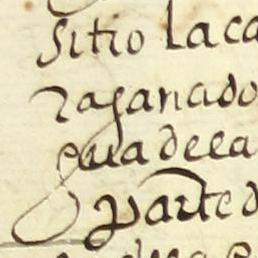 sitio la ca
ra ganado
gua de ca
parte d